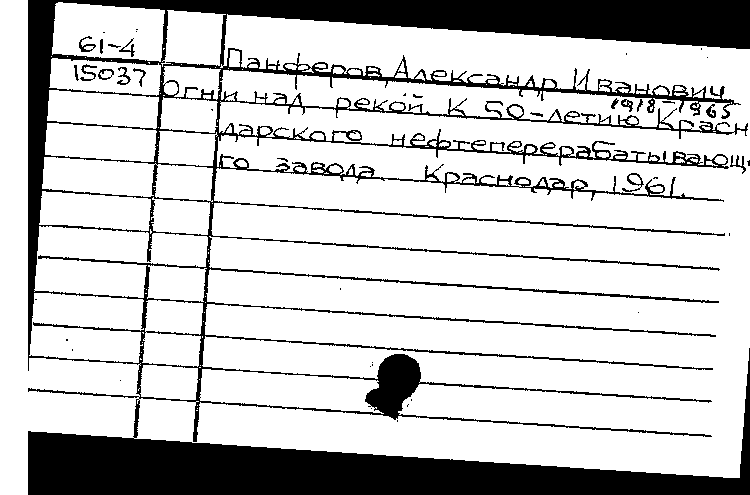 61-4
Панферов, Александр Иванович
1918-1965
15037
Огни над рекой. К 50-летию Красн
дарского нефтеперерабатывающ
го завода. Краснодар, 1961.